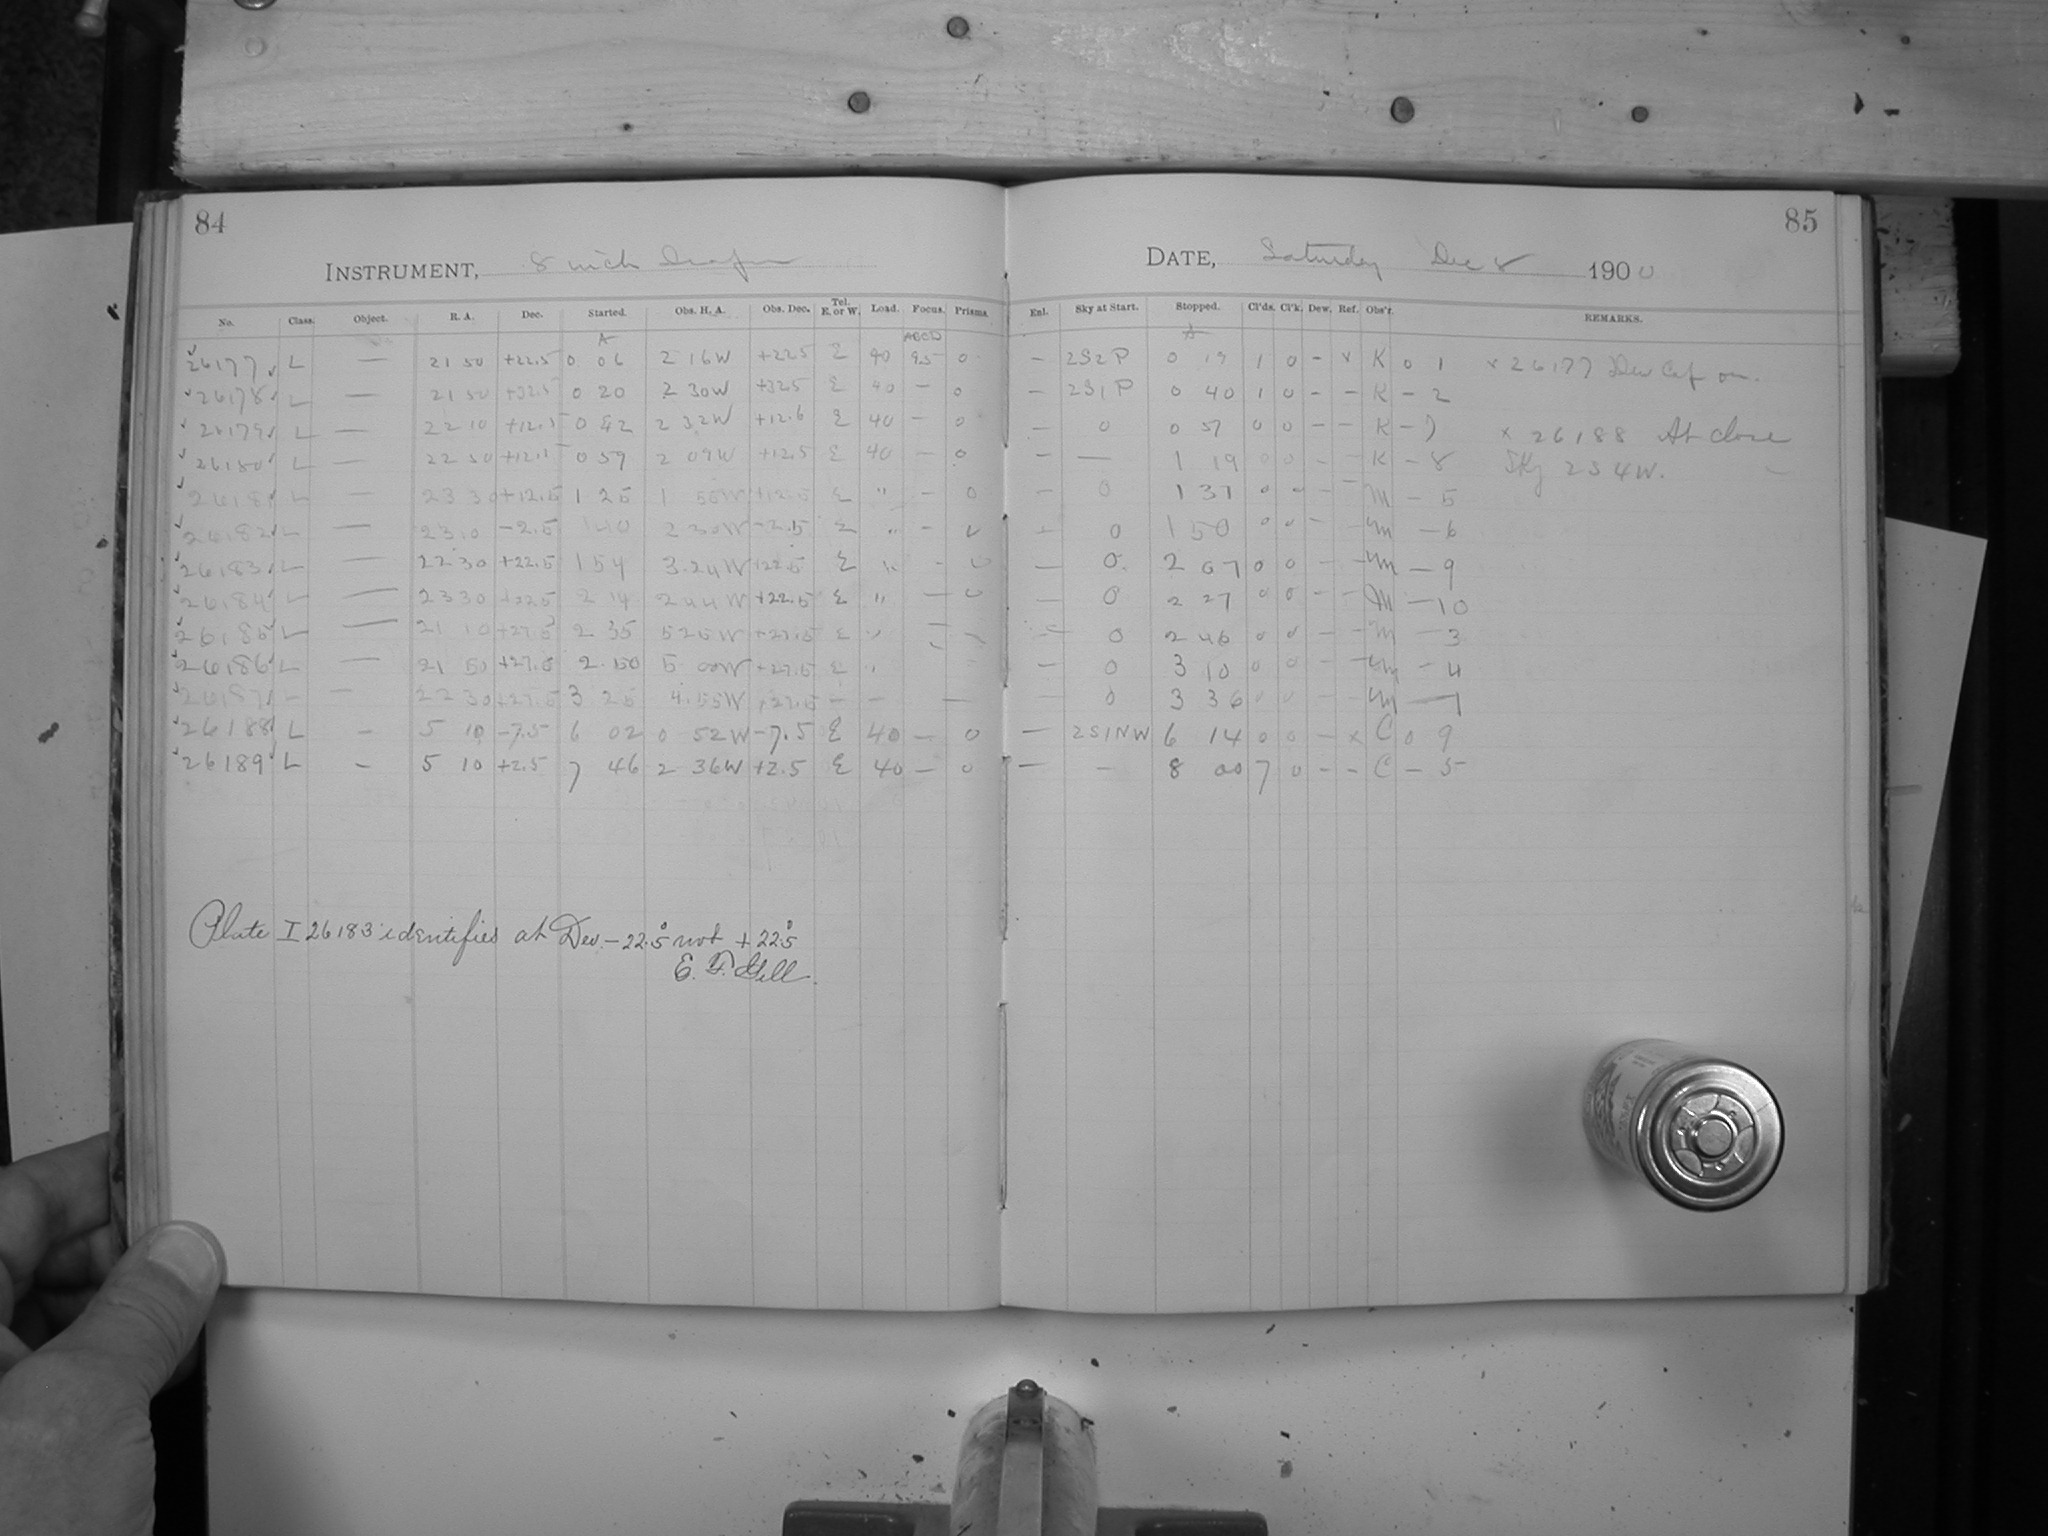 84
85
INSTRUMENT, 8 inch Draper
DATE, Saturday Dec 8 1900
No. Class. Object. R. A. Dec. Started. Obs. H. A. Obs. Dec. Tel. E. or W. Load. Focus. Prisms. Enl. Sky at Start. Stopped. Cl'ds. Cl'k. Dew. Ref. Obs'r. REMARKS.
ABCD
26177 L — 21 50 +22.5 0 06 2 16W +22.5 E 40 95 0 — 2S2P 0 19 1 0 - x K 0 1 x 26177 Dew Cap on.
26178 L — 21 50 +32.5 0 20 2 30W +32.5 E 40 — 0 — 2S1P 0 40 1 0 - - K - 2
26179 L — 22 10 0 42 2 32W E 40 — 0 — 0 0 57 0 0 - - K - 7 x 26188 At close
26180 L — 0 59 2 09W +12.5 E 40 — 0 — — 1 19 0 0 - - K - 8 Sky 2S4W.
26181 L — 23 30 +12.5 1 25 +12.5 E " — 0 — 0 1 37 0 0 - - M - 5
26182 L — 23 10 -2.5 1 40 2 30W -2.5 E " — 0 — 0 1 50 0 0 - - M - 6
26183 L — 22 30 +22.5 1 54 3.24W +22.5 E " - 0 — 0 2 07 0 0 - - M - 9
26184 L — 23 30 +22.5 2 14 2 44W +22.5 E " — 0 — 0 2 27 0 0 - - M - 10
26185 L — 21 10 +27.5 2 35 5 25W +27.5 E " — — — 0 2 46 0 0 - - M - 3
26186 L — 21 50 +27.5 2.50 5 00W +27.5 E " — 0 3 10 0 0 - - M - 4
26187 — — 22 30 +27.5 3 25 4.55W +27.5 — — — — 0 3 36 0 0 - - M - 7
26188 L — 5 10 -7.5 6 02 0 52W -7.5 E 40 — 0 — 2S1NW 6 14 0 0 - x C 0 9
26189 L — 5 10 +2.5 7 46 2 36W +2.5 E 40 — 0 — — 8 00 7 0 - - C - 5
Plate I 26183 identifies at Dec. -22.5° not +22.5°
E. F. Gill.